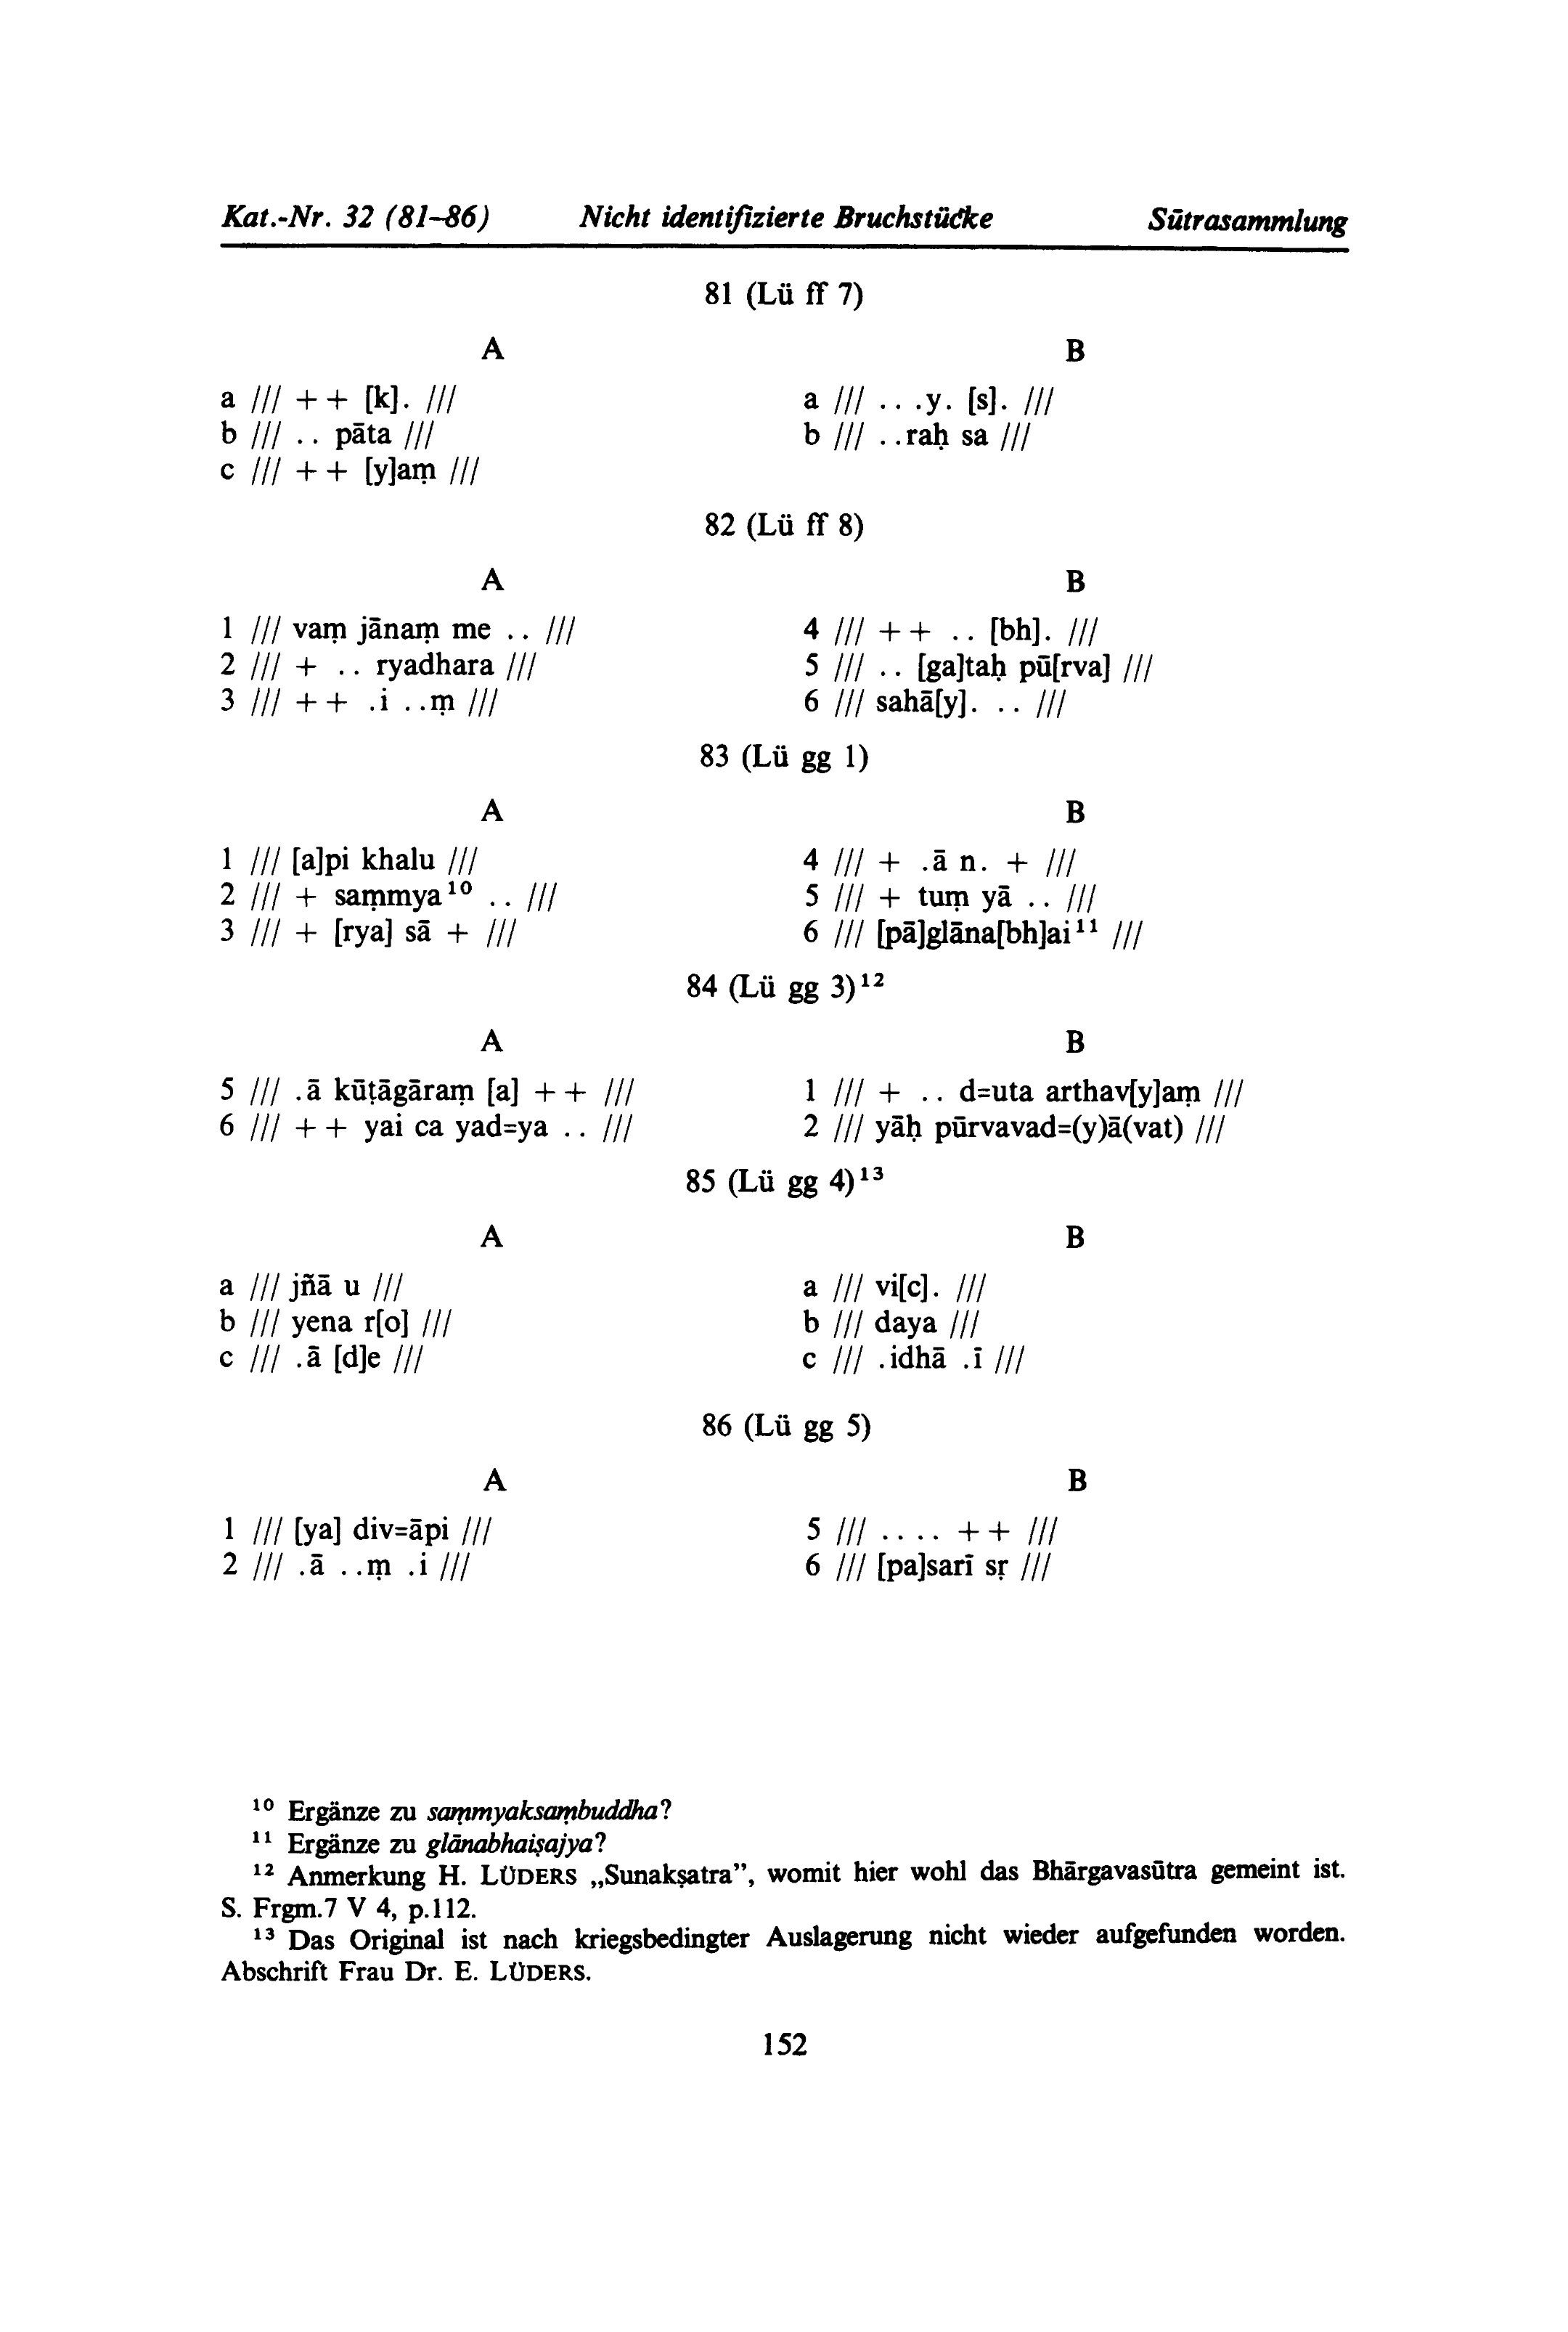 Kat.-Nr. 32 (81–86) Nicht identifizierte Bruchstücke Sūtrasammlung
81 (Lü ff 7)
A
a /// + + [k]. ///
b /// .. pāta ///
c /// + + [y]aṃ ///
B
a /// .. .y. [s]. ///
b /// ..raḥ sa ///
82 (Lü ff 8)
A
1 /// vaṃ jānaṃ me .. ///
2 /// + .. ryadhara ///
3 /// + + .i ..ṃ ///
B
4 /// + + .. [bh]. ///
5 /// .. [ga]taḥ pū[rva] ///
6 /// sahā[y]. .. ///
83 (Lü gg 1)
A
1 /// [a]pi khalu ///
2 /// + saṃmya¹⁰ .. ///
3 /// + [rya] sā + ///
B
4 /// + .ā n. + ///
5 /// + tuṃ yā .. ///
6 /// [pā]glāna[bh]ai¹¹ ///
84 (Lü gg 3)¹²
A
5 /// .ā kūṭāgāraṃ [a] + + ///
6 /// + + yai ca yad=ya .. ///
B
1 /// + .. d=uta arthav[y]aṃ ///
2 /// yāḥ pūrvavad=(y)ā(vat) ///
85 (Lü gg 4)¹³
A
a /// jñā u ///
b /// yena r[o] ///
c /// .ā [d]e ///
B
a /// vi[c]. ///
b /// daya ///
c /// .idhā .ī ///
86 (Lü gg 5)
A
1 /// [ya] div=āpi ///
2 /// .ā ..ṃ .i ///
B
5 /// .... + + ///
6 /// [pa]sarī sṛ ///
¹⁰ Ergänze zu saṃmyaksaṃbuddha?
¹¹ Ergänze zu glānabhaiṣajya?
¹² Anmerkung H. LÜDERS „Sunakṣatra”, womit hier wohl das Bhārgavasūtra gemeint ist.
S. Frgm.7 V 4, p.112.
¹³ Das Original ist nach kriegsbedingter Auslagerung nicht wieder aufgefunden worden.
Abschrift Frau Dr. E. LÜDERS.
152